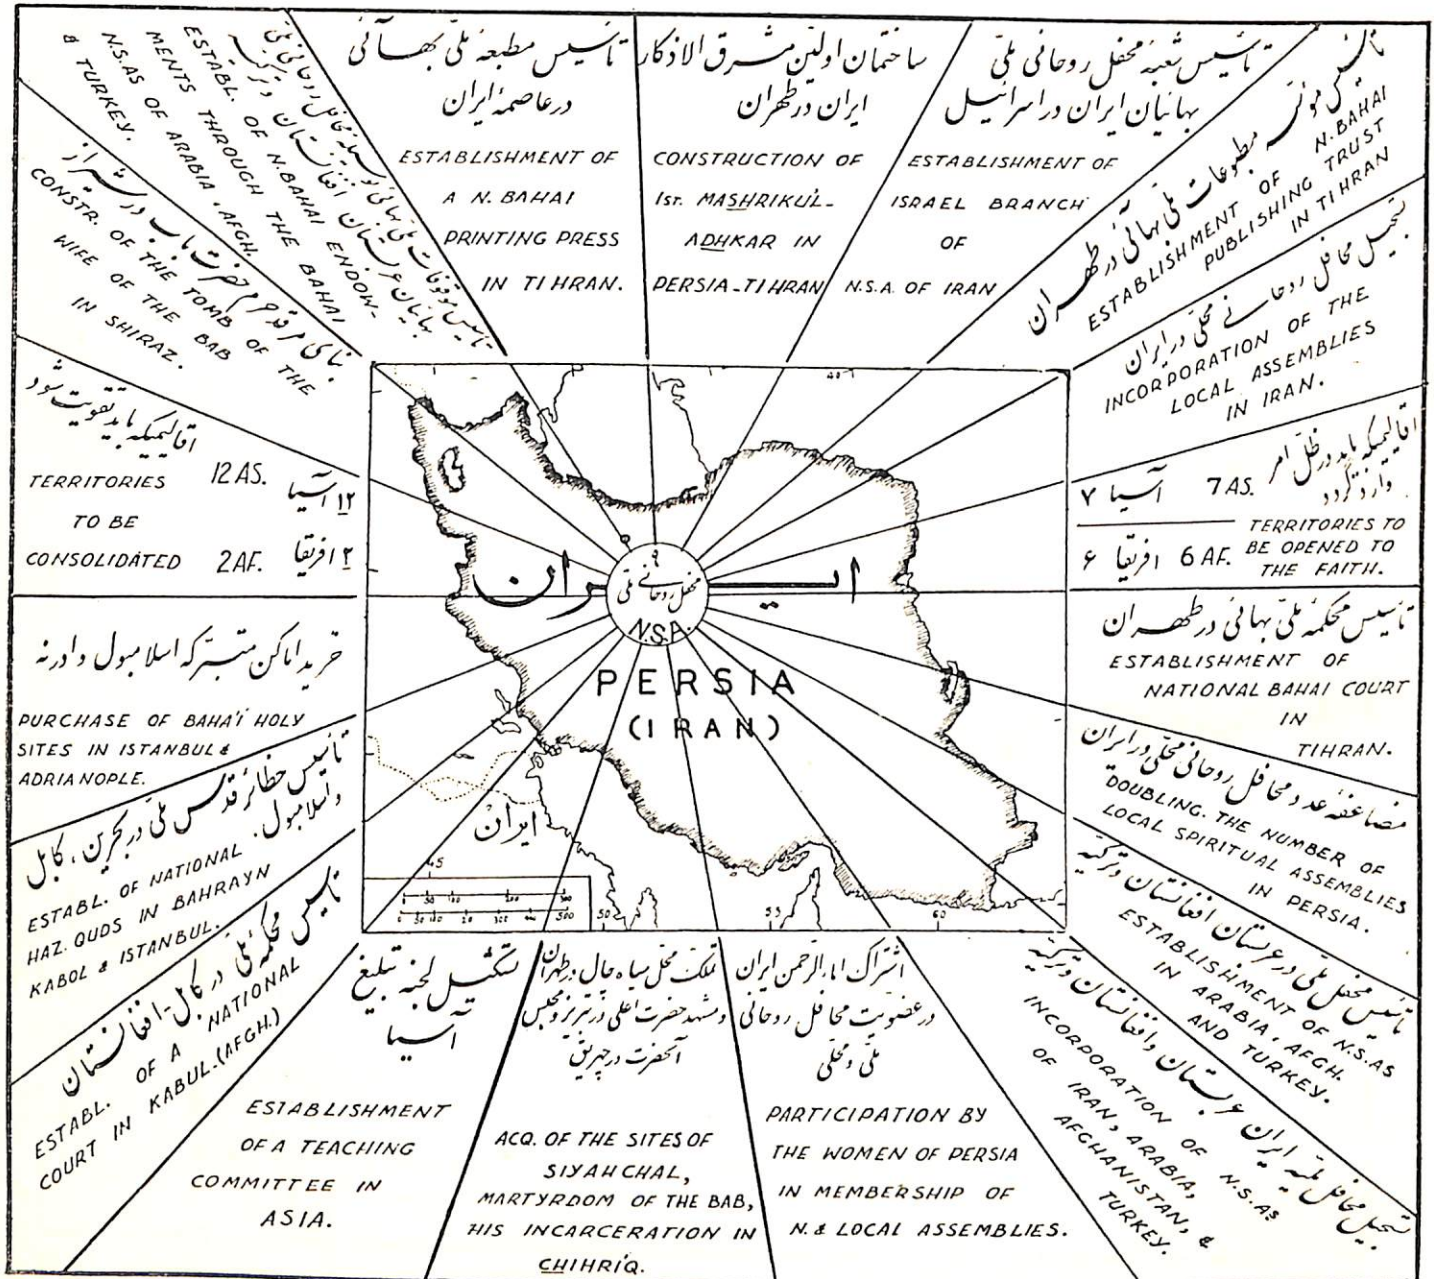 تأسیس مطبعه ملّی بهائی
در عاصمهٔ ایران
ESTABLISHMENT OF
A N. BAHAI
PRINTING PRESS
IN TIHRAN.
ساختمان اولین مشرق الاذکار
ایران در طهران
CONSTRUCTION OF
1ST. MASHRIKU'L-
ADHKAR IN
PERSIA-TIHRAN
تأسیس شعبهٔ محفل روحانی ملّی
بهائیان ایران در اسرائیل
ESTABLISHMENT OF
ISRAEL BRANCH
OF
N.S.A. OF IRAN
تأسیس مؤسسه مطبوعات ملّی بهائی در طهران
ESTABLISHMENT OF N. BAHAI
PUBLISHING TRUST
IN TIHRAN
تسجیل محافل روحانی محلّی در ایران
INCORPORATION OF THE
LOCAL ASSEMBLIES
IN IRAN.
اقالیمیکه باید در ظلّ امر
وارد گردد
۷ آسیا 7 AS.
۶ افریقا 6 AF.
TERRITORIES TO
BE OPENED TO
THE FAITH.
تأسیس محکمهٔ ملّی بهائی در طهران
ESTABLISHMENT OF
NATIONAL BAHAI COURT
IN
TIHRAN.
مضاعفهٔ عدد محافل روحانی محلّی در ایران
DOUBLING. THE NUMBER OF
LOCAL SPIRITUAL ASSEMBLIES
IN PERSIA.
تأسیس محفل ملّی در عربستان افغانستان و ترکیه
ESTABLISHMENT OF N.S.AS
IN ARABIA, AFGH.
AND TURKEY.
تسجیل محافل ملّیه ایران عربستان و افغانستان و ترکیه
INCORPORATION OF N.S.AS
OF IRAN, ARABIA,
AFGHANISTAN, &
TURKEY.
اشتراک اماء الرحمن ایران
در عضویت محافل روحانی
ملّی و محلّی
PARTICIPATION BY
THE WOMEN OF PERSIA
IN MEMBERSHIP OF
N. & LOCAL ASSEMBLIES.
تملک محل سیاه چال در طهران
و مشهد حضرت اعلی در تبریز و محبس
آنحضرت در چهریق
ACQ. OF THE SITES OF
SIYAH CHAL,
MARTYRDOM OF THE BAB,
HIS INCARCERATION IN
CHIHRIQ.
تشکیل لجنه تبلیغ
آسیا
ESTABLISHMENT
OF A TEACHING
COMMITTEE IN
ASIA.
تأسیس محکمه ملّی در کابل - افغانستان
ESTABL. OF A NATIONAL
COURT IN KABUL. (AFGH.)
تأسیس حظائر قدس ملّی در بحرین، کابل
و اسلامبول.
ESTABL. OF NATIONAL
HAZ. QUDS IN BAHRAYN
KABOL & ISTANBUL.
خرید اماکن متبرکه اسلامبول و ادرنه
PURCHASE OF BAHA'I HOLY
SITES IN ISTANBUL &
ADRIANOPLE.
اقالیمیکه باید تقویت شود
TERRITORIES
TO BE
CONSOLIDATED
12 AS. ۱۲ آسیا
2 AF. ۲ افریقا
بنای مرقد حرم حضرت باب در شیراز
CONSTR. OF THE TOMB OF THE
WIFE OF THE BAB
IN SHIRAZ.
تأسیس موقوفات ملّی بهائی بوسیله محافل روحانی ملّی
بهائیان عربستان افغانستان و ترکیه
ESTABL. OF N. BAHAI ENDOW-
MENTS THROUGH THE BAHAI
N.S.AS OF ARABIA, AFGH.
& TURKEY.
40
ایران
۹
محفل روحانی ملی
N.S.A.
PERSIA
(IRAN)
ایران
45
50
55
60